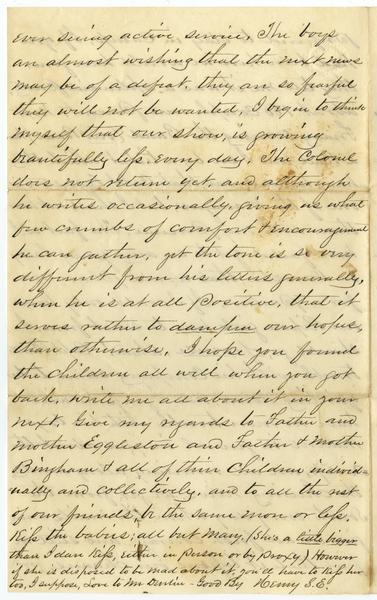 ever seeing active service. The boys
are almost wishing that the next news
may be of a defeat. they are so fearful
they will not be wanted, I begin to think
myself that our show, is growing
beautifully less, every day. The Colonel
does not return yet, and although
he writes occasionally, giving us what
few crumbs of comfort & encouragement
he can gather, yet the tone is so very
different from his letters generally,
when he is at all positive, that it
serves rather to dampen our hopes,
than otherwise. I hope you found
the children all well when you got
back, write me all about it in your
next. Give my regards to Father and
mother Eggleston and Father & Mother
Bingham & all of their Children individ-
ually and collectively, and to all the rest
of our friends, the same more or less.
Kiss the babies; all but Mary, (She's a little bigger
than I dare kiss, either in person or by Proxy) However
if she is disposed to be mad about it, you'll have to kiss her
too, I suppose, Love to Mr - Good By Henry S. E.